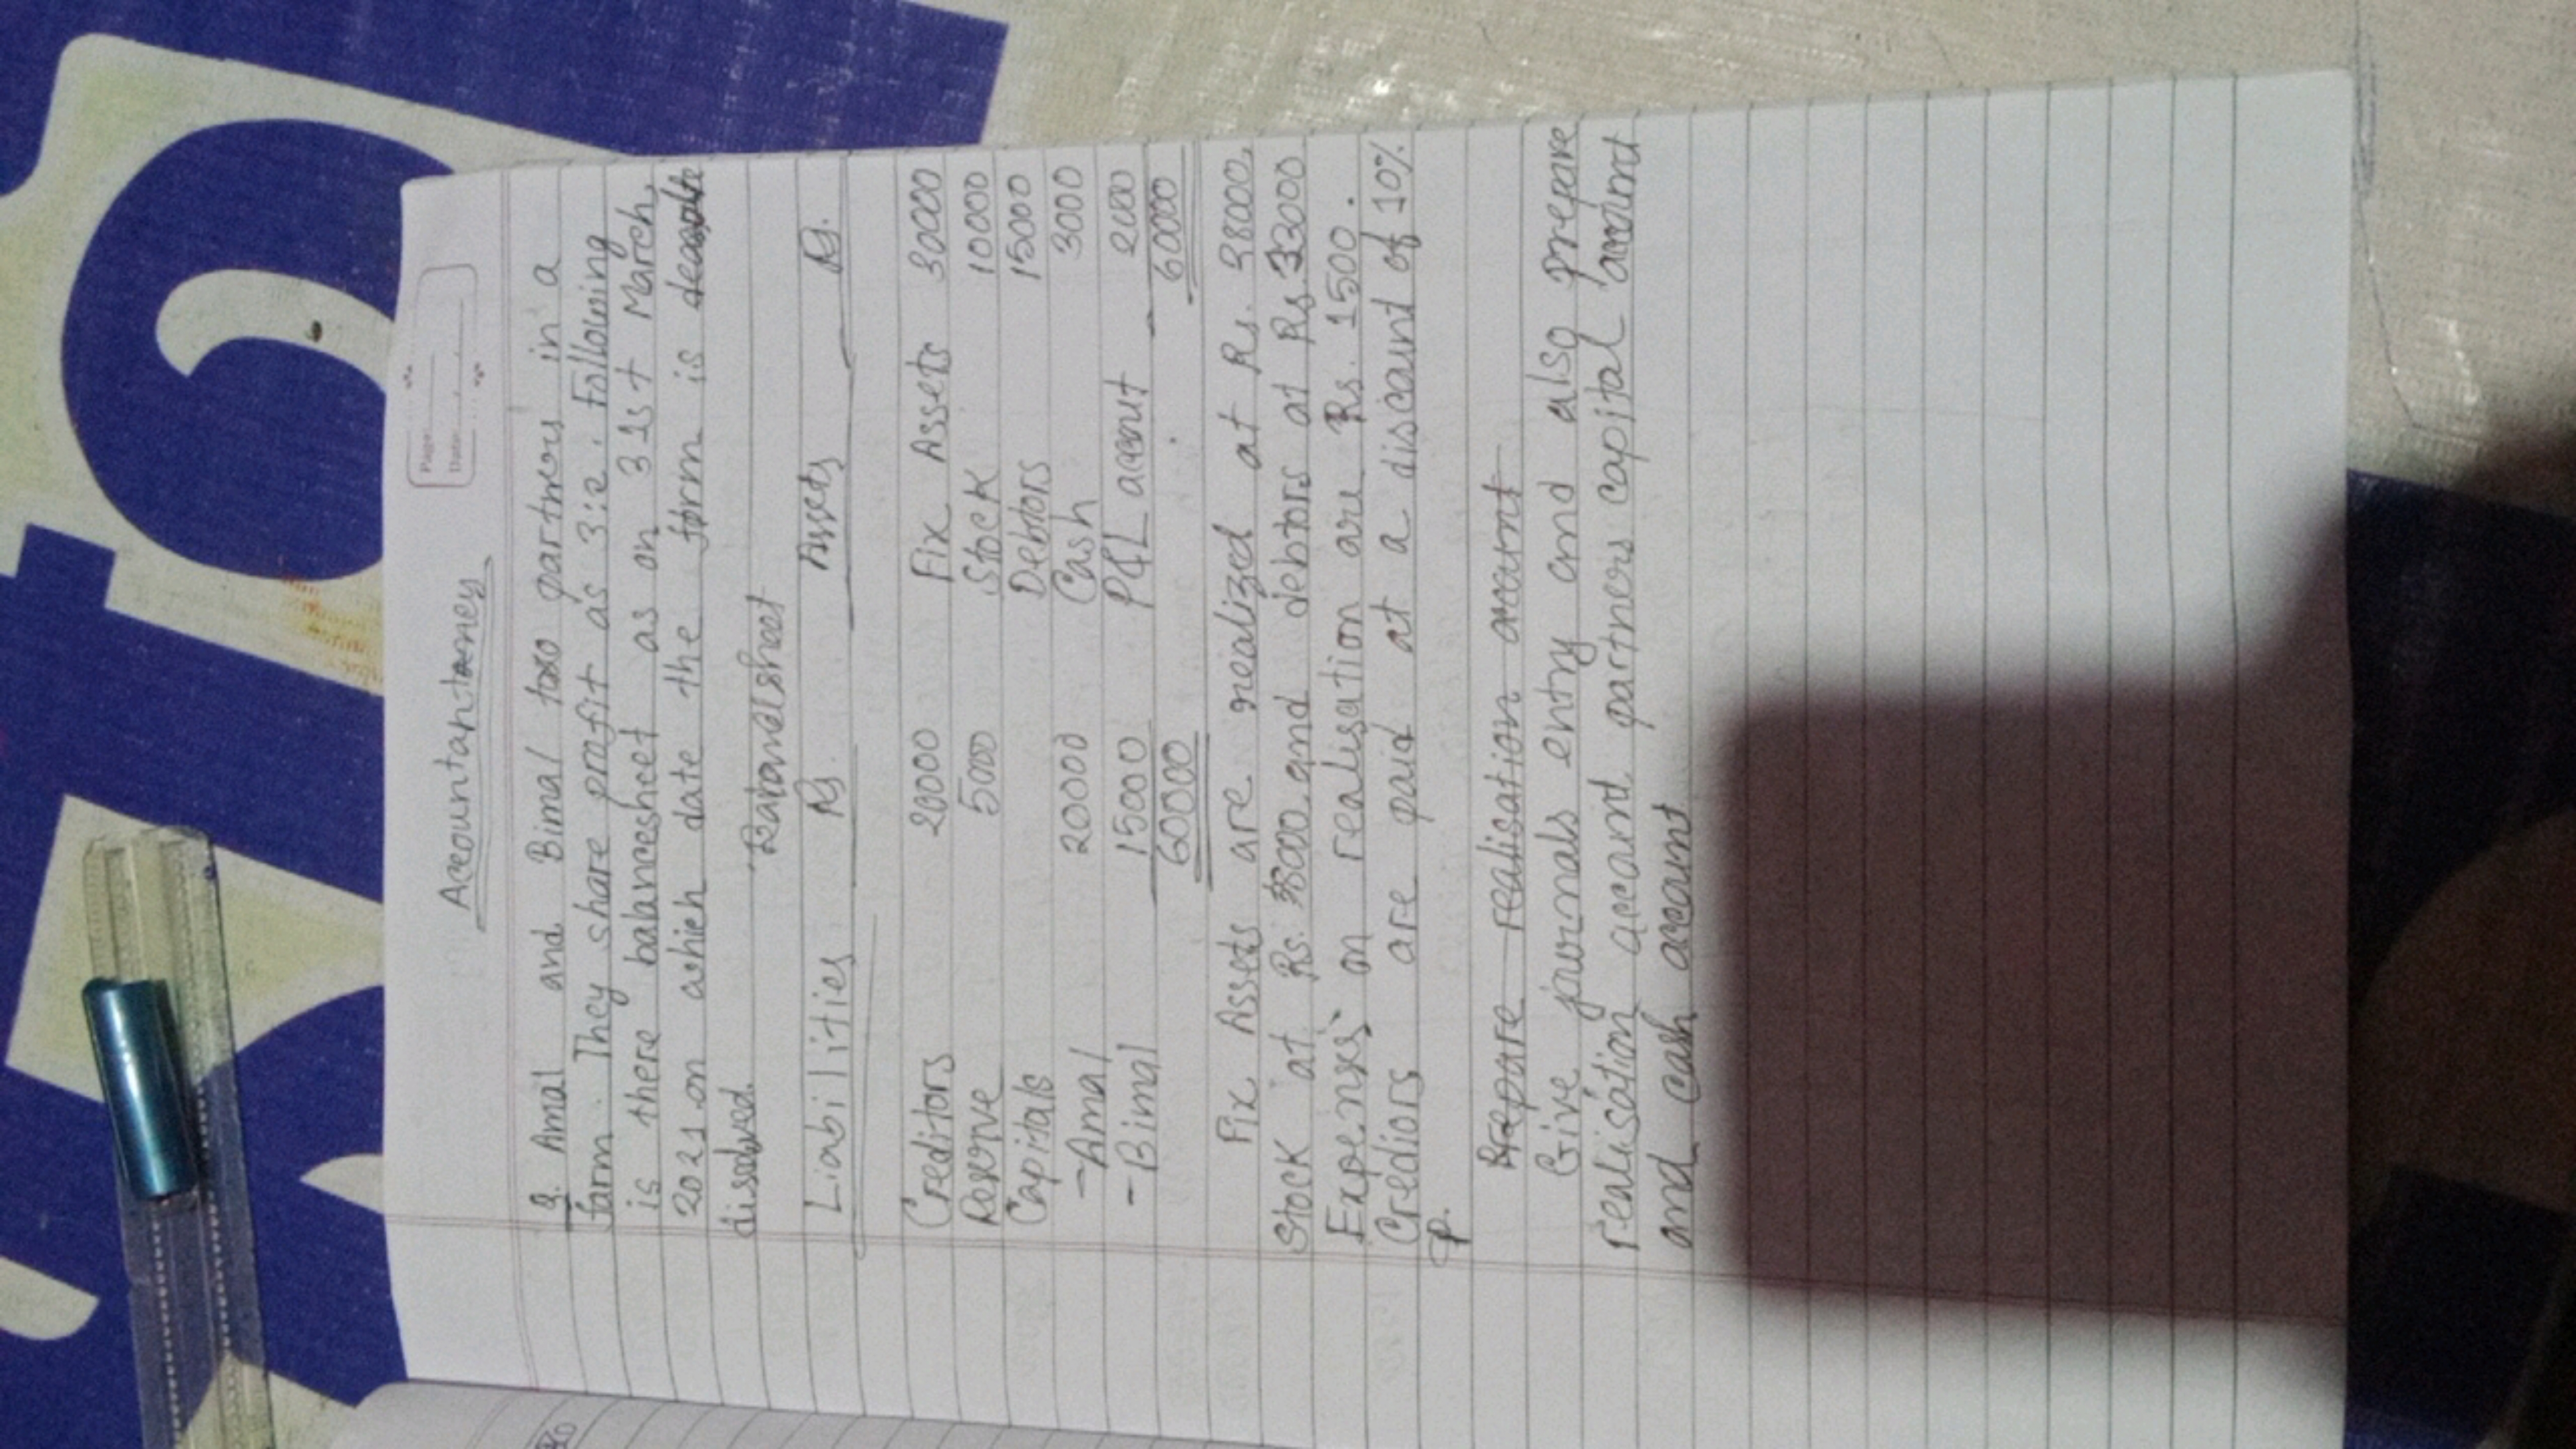 Page:
Date:
Accountantency
Q. Amal and Bimal two partners in a
farm. They share profit as 3:2. Following
is there balancesheet as on 31st March,
2021 on which date the form is
dissolved.
Balancesheet
Liabilities Rs. Assets Rs.
Creditors 20000 Fix Assets 30000
Reserve 5000 Stock 10000
Capitals Debtors 15000
-Amal 20000 Cash 3000
-Bimal 15000 P&L account 2000
60000 60000
Fix Assets are realized at Rs. 38000,
Stock at Rs. 8000 and debtors at Rs. 33000
Expenses on realisation are Rs. 1500.
Crediors are paid at a discount of 10%
Prepare realisation account
Give journals entry and also prepare
realisation account partners capital account
and cash account